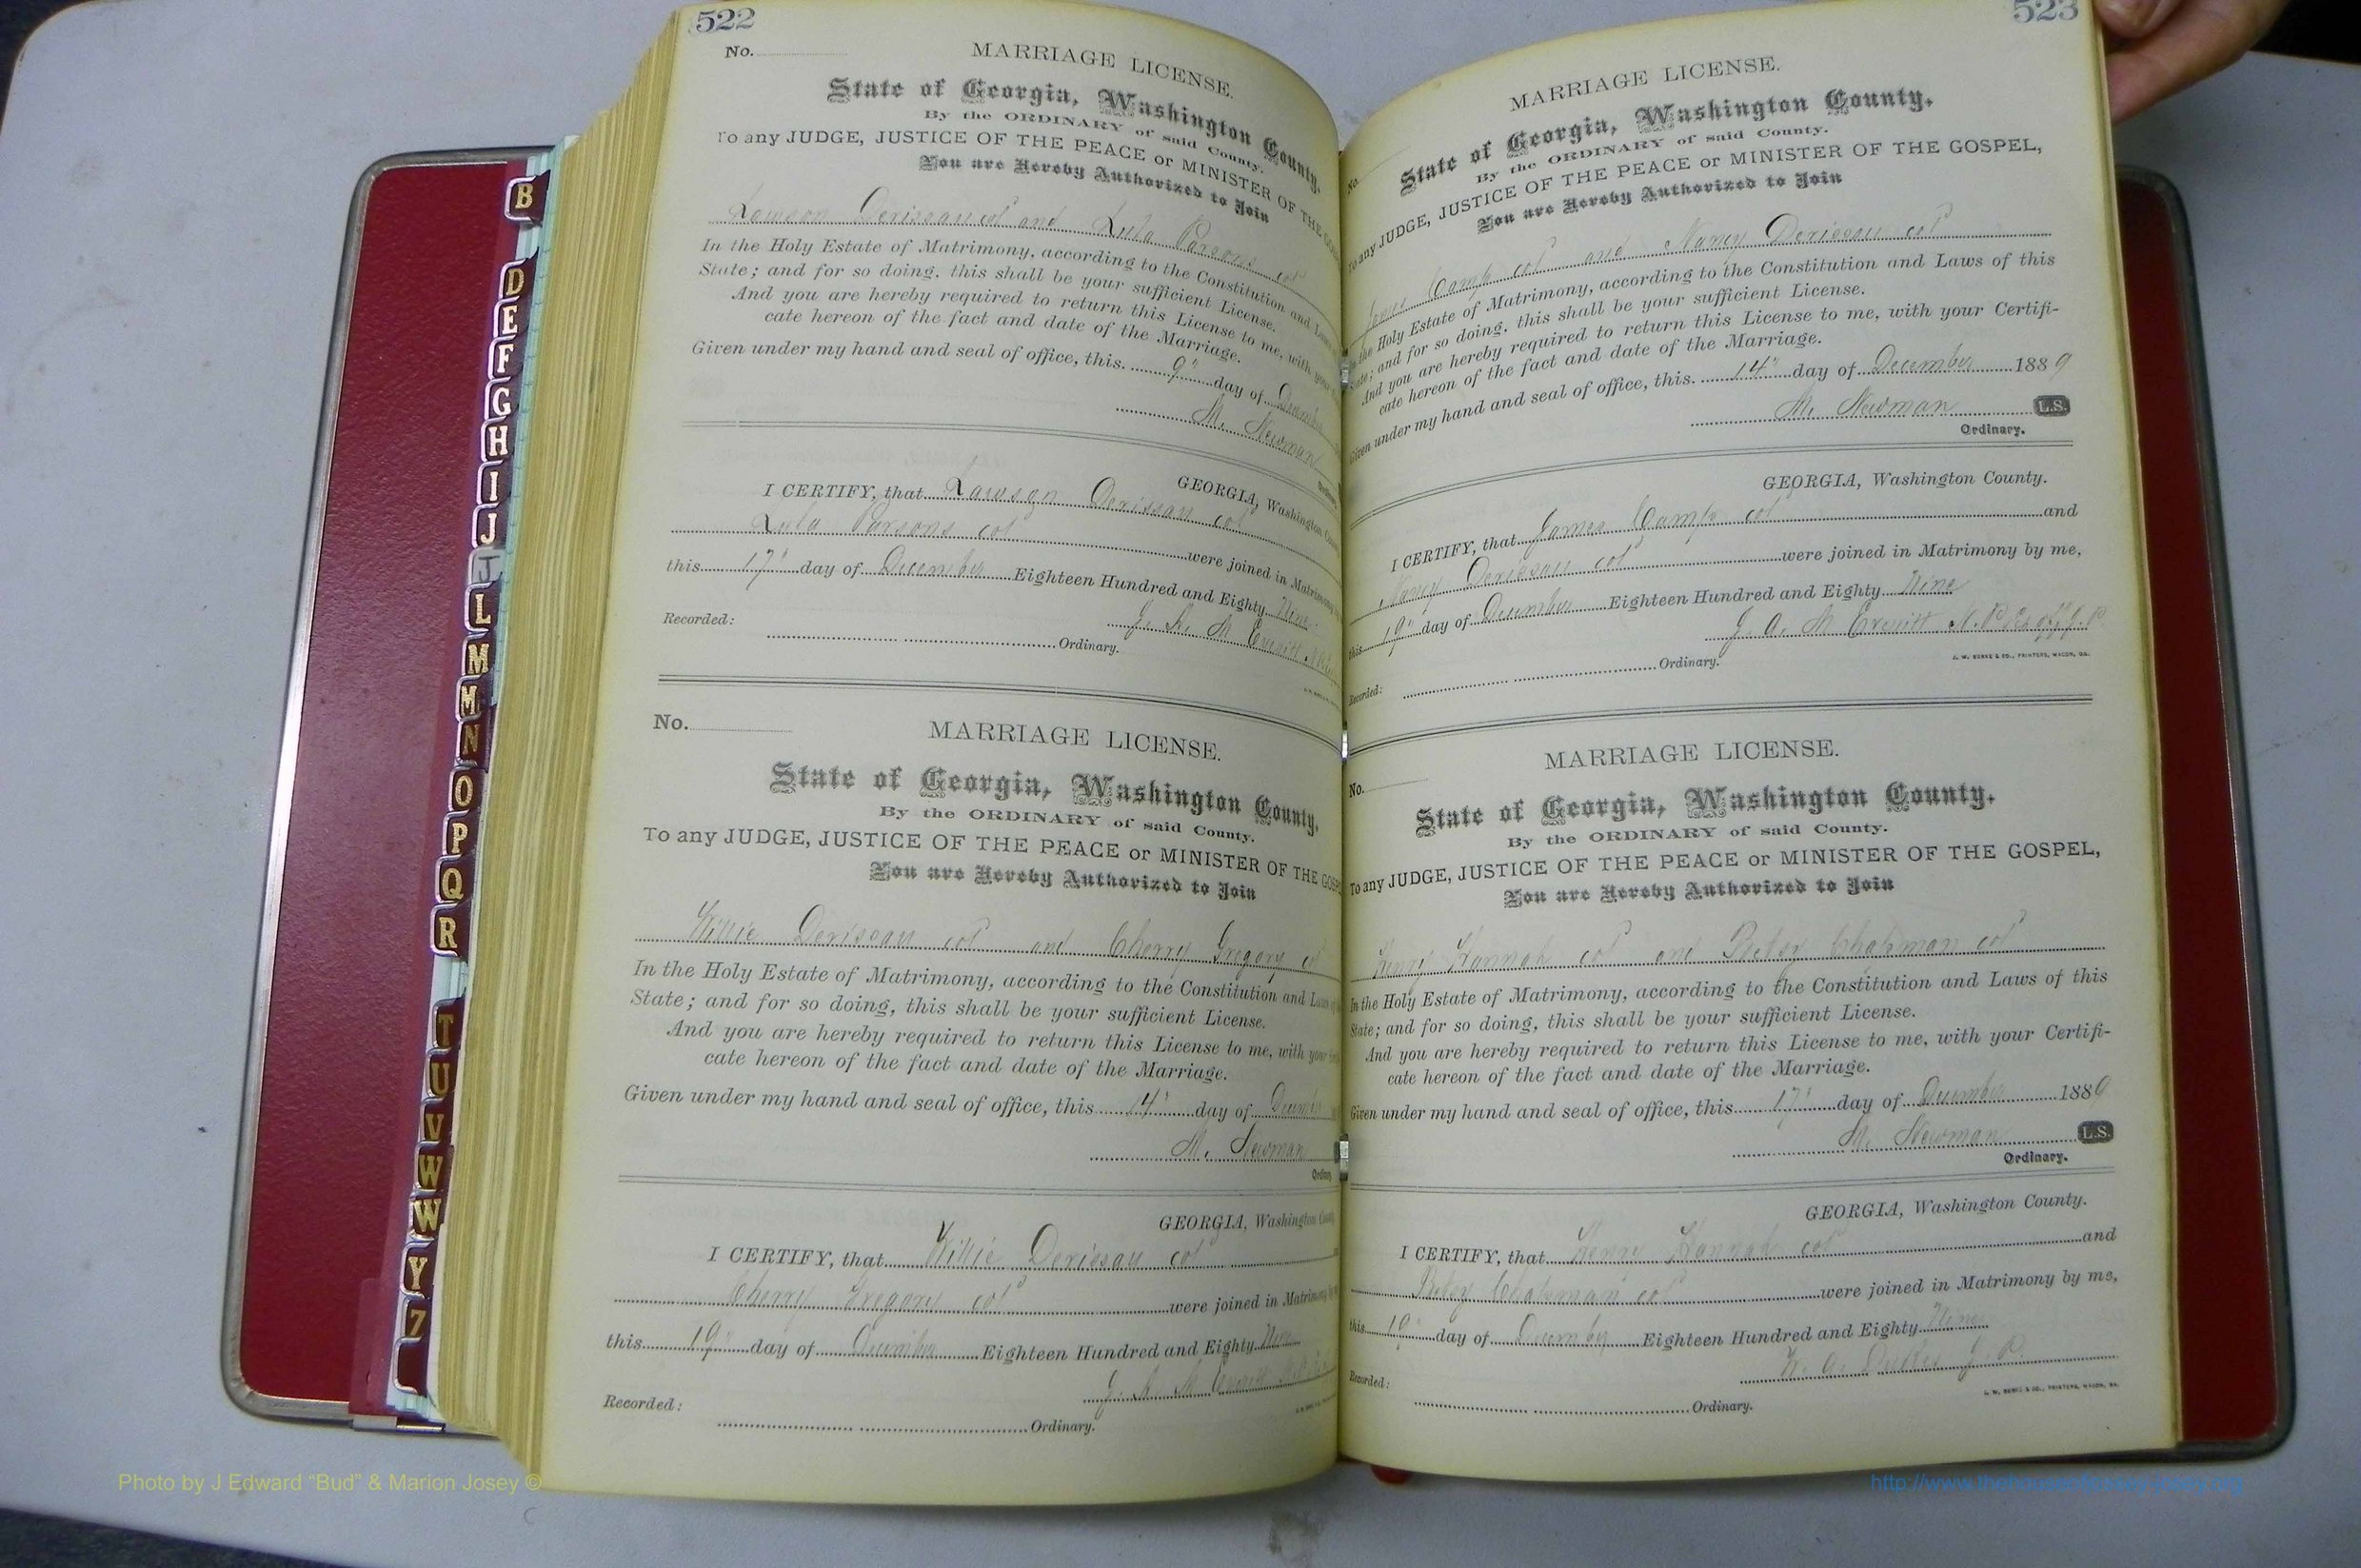 522
No.
MARRIAGE LICENSE.
State of Georgia, Washington County.
By the ORDINARY of said County.
To any JUDGE, JUSTICE OF THE PEACE or MINISTER OF THE
You are Hereby Authorized to Join
Lawson Derissau col and Lula Parsons col
In the Holy Estate of Matrimony, according to the Constitution and
State; and for so doing. this shall be your sufficient License.
And you are hereby required to return this License to me, with your
cate hereon of the fact and date of the Marriage.
Given under my hand and seal of office, this. 9" day of
M. Newman
GEORGIA, Washington
I CERTIFY, that Lawson Derissau col
Lula Parsons col were joined in
this 17" day of December Eighteen Hundred and Eighty Nine
Recorded: Ordinary.
No.
MARRIAGE LICENSE.
State of Georgia, Washington County.
By the ORDINARY of said County.
To any JUDGE, JUSTICE OF THE PEACE or MINISTER OF THE
You are Hereby Authorized to Join
Willie Derissau col and Cherry Gregory
In the Holy Estate of Matrimony, according to the Constitution and
State; and for so doing, this shall be your sufficient License.
And you are hereby required to return this License to me, with
cate hereon of the fact and date of the Marriage.
Given under my hand and seal of office, this 14" day of
M. Newman
GEORGIA, Washington
I CERTIFY, that Willie Derissau col
Cherry Gregory col were joined in
this 19" day of December Eighteen Hundred and Eighty Nine
Recorded: Ordinary.
523
No.
MARRIAGE LICENSE.
State of Georgia, Washington County.
By the ORDINARY of said County.
To any JUDGE, JUSTICE OF THE PEACE or MINISTER OF THE GOSPEL,
You are Hereby Authorized to Join
James Camp col and Nancy Derissau col
the Holy Estate of Matrimony, according to the Constitution and Laws of this
and for so doing. this shall be your sufficient License.
And you are hereby required to return this License to me, with your Certifi-
cate hereon of the fact and date of the Marriage.
Given under my hand and seal of office, this. 14" day of December 1889
M. Newman L.S.
Ordinary.
GEORGIA, Washington County.
I CERTIFY, that James Camp col and
Nancy Derissau col were joined in Matrimony by me,
this 19" day of December Eighteen Hundred and Eighty Nine
J. W. BURKE & CO., PRINTERS, MACON, GA.
Recorded: Ordinary.
No.
MARRIAGE LICENSE.
State of Georgia, Washington County.
By the ORDINARY of said County.
To any JUDGE, JUSTICE OF THE PEACE or MINISTER OF THE GOSPEL,
You are Hereby Authorized to Join
Henry Hannah col and Betsy Chapman col
In the Holy Estate of Matrimony, according to the Constitution and Laws of this
State; and for so doing, this shall be your sufficient License.
And you are hereby required to return this License to me, with your Certifi-
cate hereon of the fact and date of the Marriage.
Given under my hand and seal of office, this 17" day of December 1889
M. Newman L.S.
Ordinary.
GEORGIA, Washington County.
I CERTIFY, that Henry Hannah col and
Betsy Chapman col were joined in Matrimony by me,
this 19" day of December Eighteen Hundred and Eighty Nine
J. P.
J. W. BURKE & CO., PRINTERS, MACON, GA.
Recorded: Ordinary.
B
D
E
F
G
H
I
J
L
M
M
N
O
P
Q
R
T
U
V
W
W
Y
Z
Photo by J Edward “Bud” & Marion Josey ©